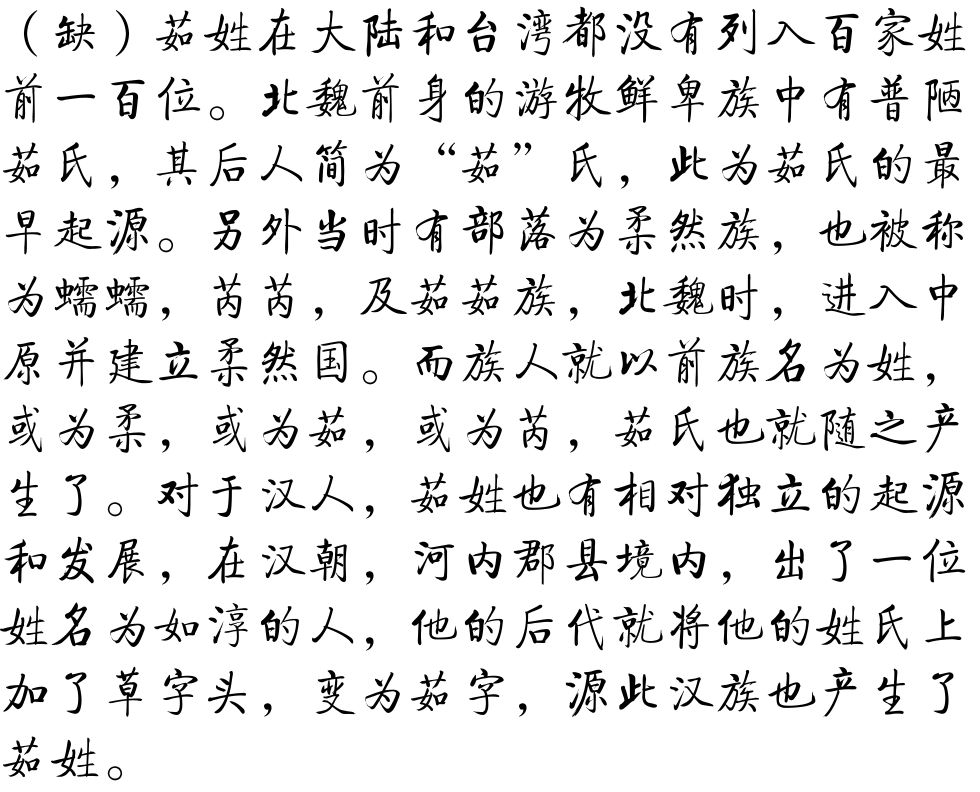 （缺）茹姓在大陆和台湾都没有列入百家姓
前一百位。北魏前身的游牧鲜卑族中有普陋
茹氏，其后人简为“茹”氏，此为茹氏的最
早起源。另外当时有部落为柔然族，也被称
为蠕蠕，芮芮，及茹茹族，北魏时，进入中
原并建立柔然国。而族人就以前族名为姓，
或为柔，或为茹，或为芮，茹氏也就随之产
生了。对于汉人，茹姓也有相对独立的起源
和发展，在汉朝，河内郡县境内，出了一位
姓名为如淳的人，他的后代就将他的姓氏上
加了草字头，变为茹字，源此汉族也产生了
茹姓。